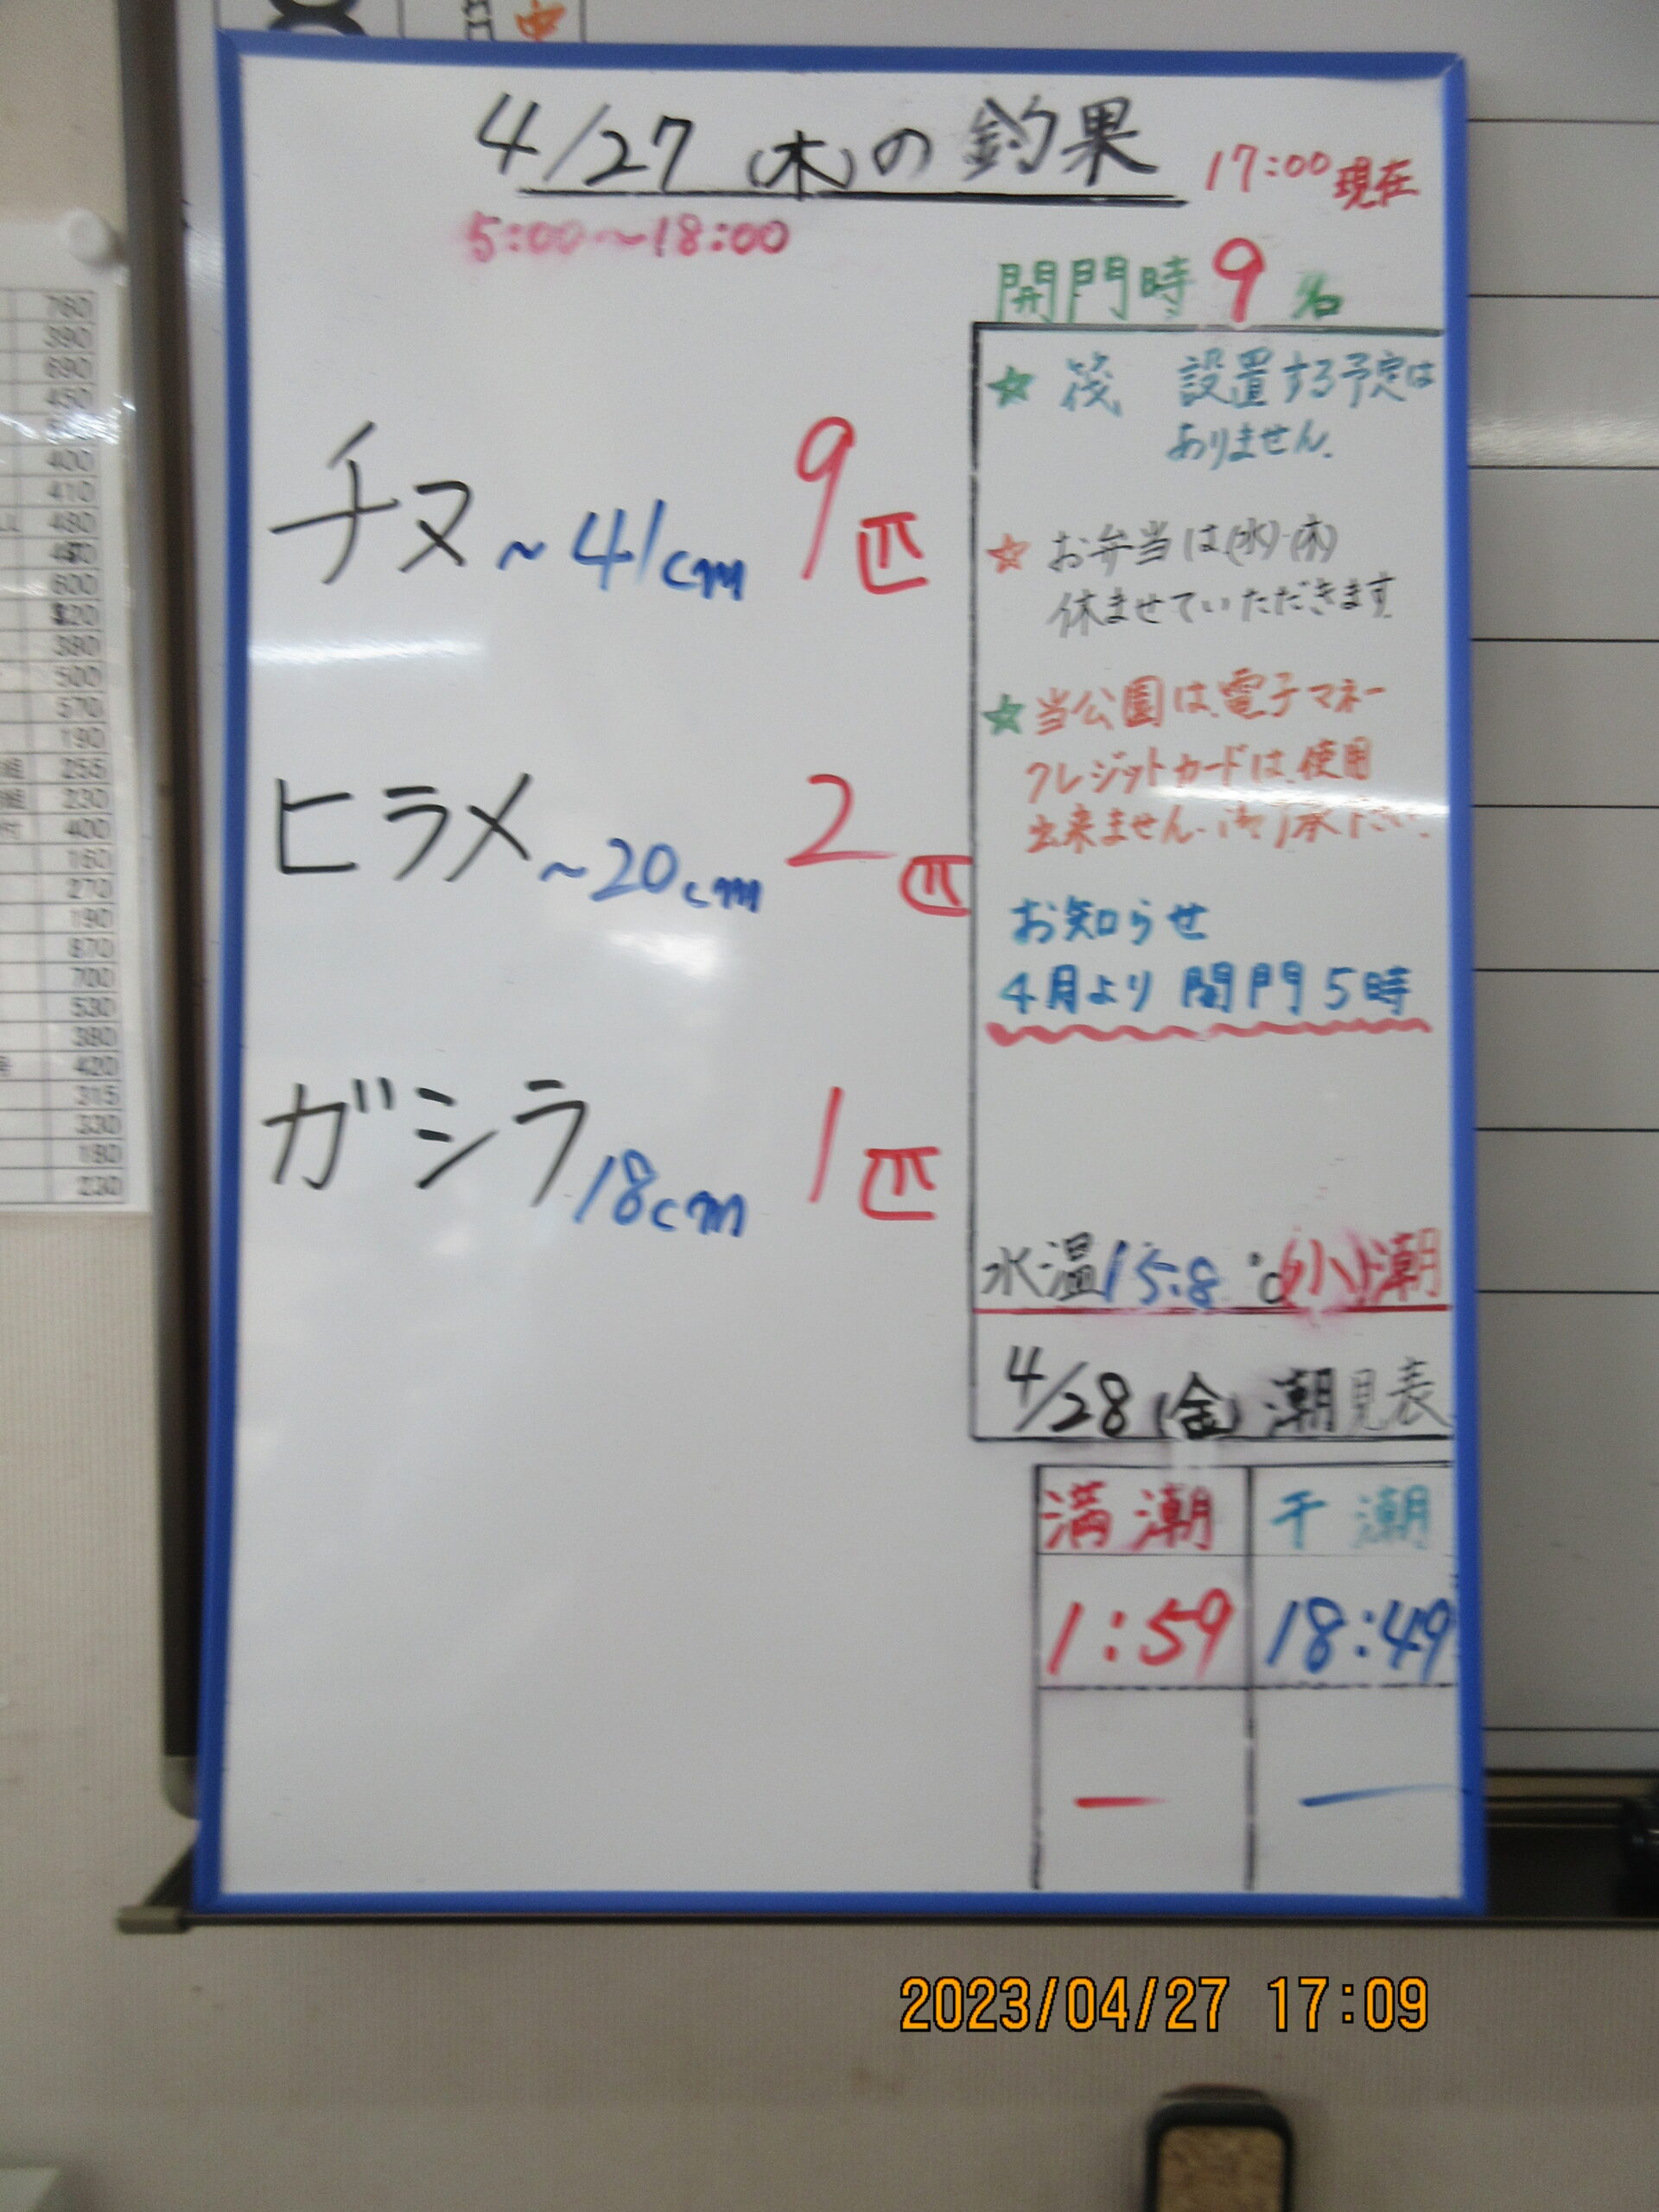 4/27(木)の釣果
17:00現在
5:00~18:00
開門時 9名
チヌ~41cm 9匹
ヒラメ~20cm 2匹
ガシラ18cm 1匹
☆ 筏 設置する予定は
ありません.
☆ お弁当は(水)・(木)
休ませていただきます
☆ 当公園は、電子マネー
クレジットカードは、使用
出来ません.御了承下さい.
お知らせ
4月より 開門5時
水温15.8℃ 小潮
4/28(金) 潮見表
満潮 干潮
1:59 18:49
— —
760
390
690
450
400
410
480
600
380
500
570
190
255
230
400
160
270
190
870
700
530
380
420
315
330
180
230
2023/04/27 17:09